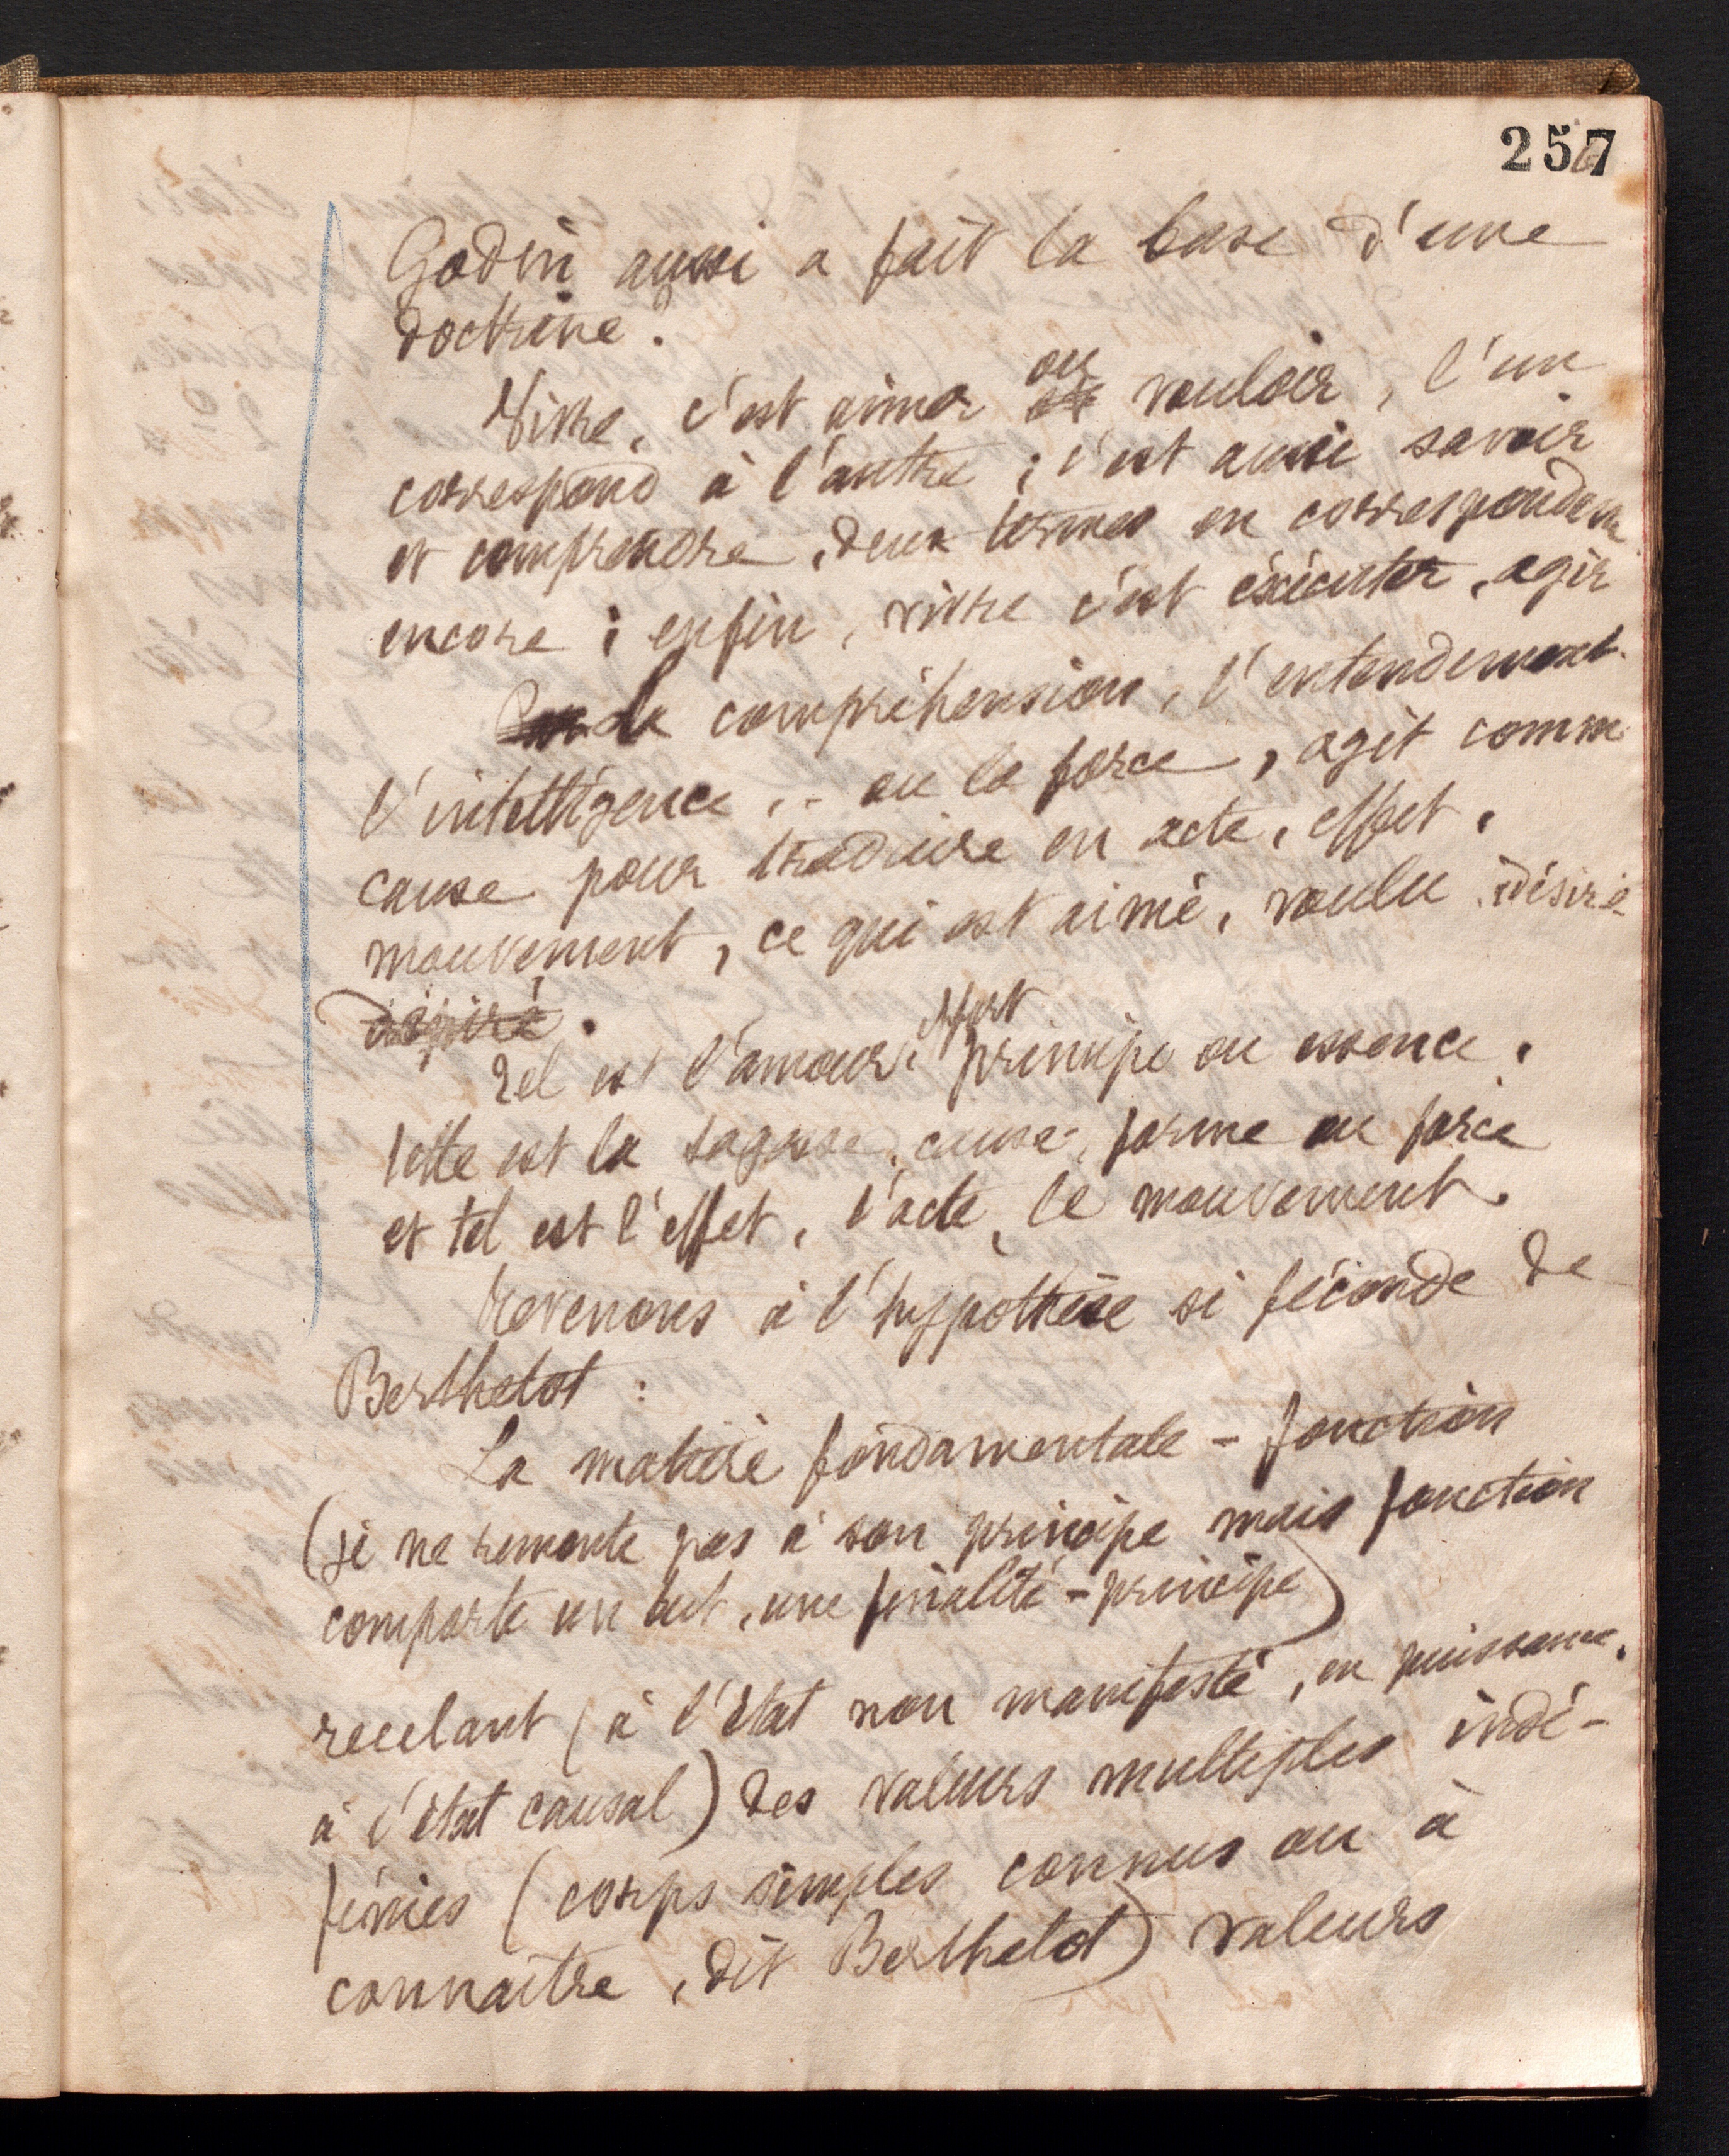 257
Godin aussi a fait la base d'une
doctrine.
Vivre, c'est aimer ou vouloir, l'un
correspond à l'autre ; c'est aussi savoir
et comprendre, deux termes en correspondance
encore ; enfin, vivre c'est exécuter, agir
La compréhension, l'entendement
l'intelligence, - ou la force, agit comme
cause pour traduire en acte, effet,
mouvement, ce qui est aimé, voulu, désiré
désiré.
Tel est l'amour, esprit principe ou essence,
telle est la sagesse, cause, forme ou force
et tel est l'effet, l'acte, le mouvement.
Revenons à l'hypothèse si féconde de
Berthelot :
La matière fondamentale - fonction
(je ne remonte pas à son principe mais fonction
comporte un but, une finalité - principe)
recelant (à l'état non manifesté, en puissance,
à l'état causal) des valeurs multiples indé-
finies (corps simples connus ou à
connaître, dit Berthelot) valeurs